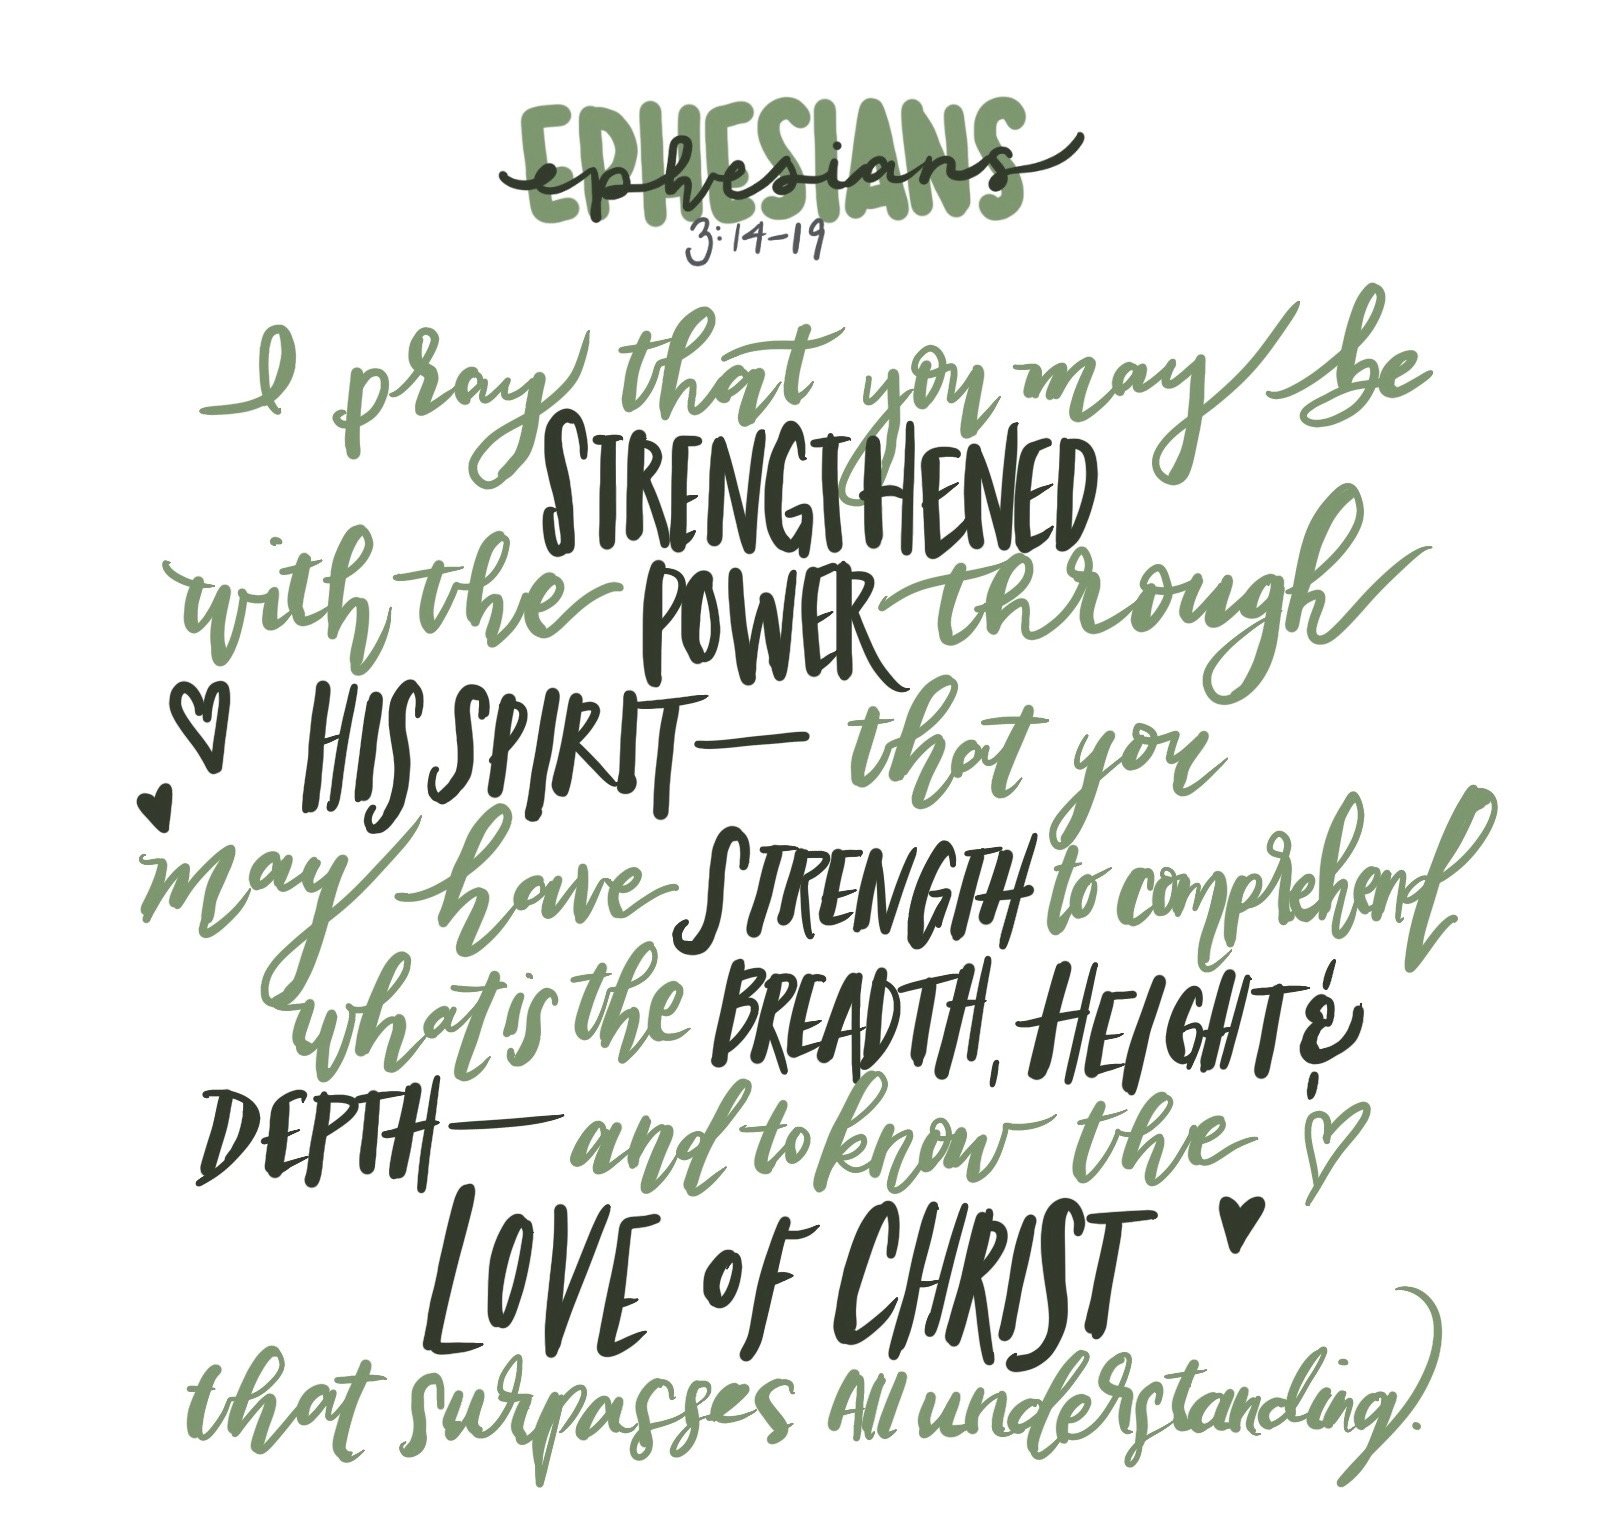 EPHESIANS
ephesians
3:14-19
I pray that you may be
STRENGTHENED
with the POWER through
HIS SPIRIT— that you
may have STRENGTH to comprehend
what is the BREADTH, HEIGHT &
DEPTH— and to know the
LOVE OF CHRIST
that surpasses All understanding.